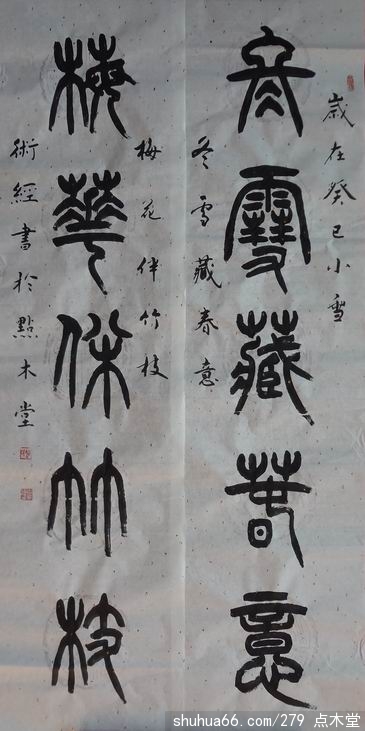 歲在癸巳小雪
冬雪藏春意
冬雪藏春意
梅花伴竹枝
梅華伴竹枝
術經書於點木堂
shuhua66.com/279 点木堂